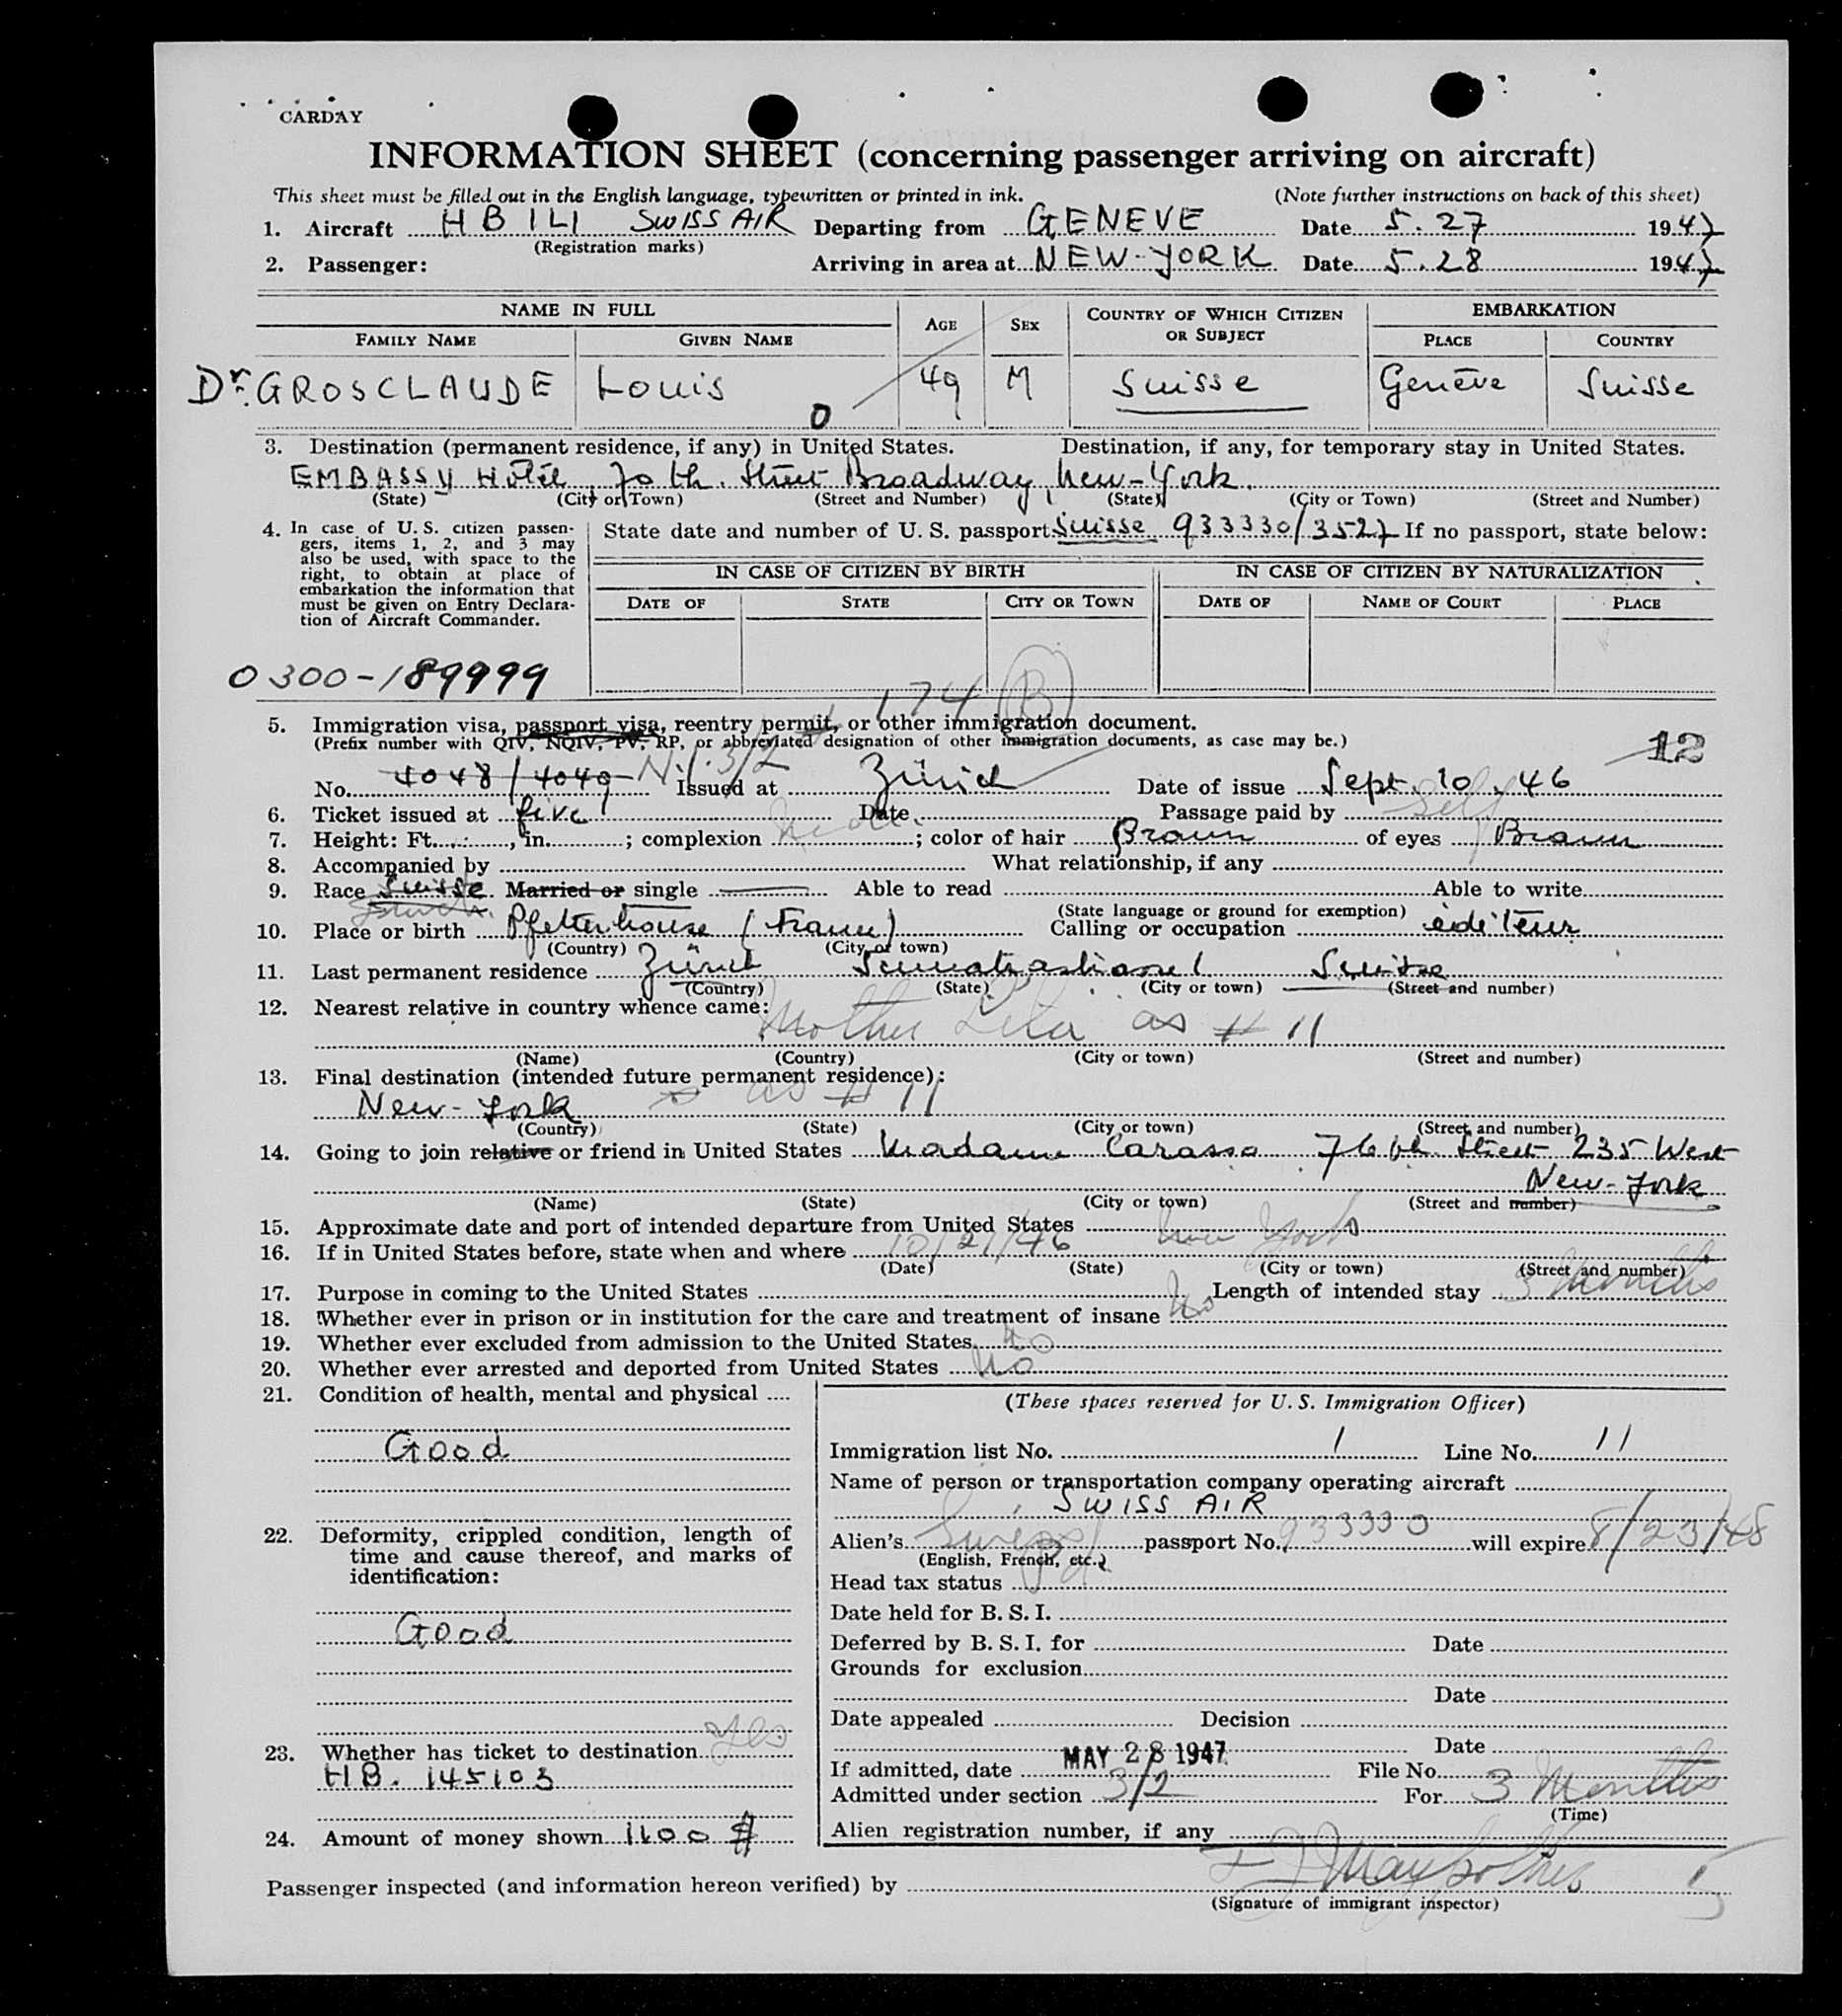 CARDAY
INFORMATION SHEET (concerning passenger arriving on aircraft)
This sheet must be filled out in the English language, typewritten or printed in ink. (Note further instructions on back of this sheet)
1. Aircraft HB ILI SWISSAIR Departing from GENEVE Date 5.27 1947
(Registration marks)
2. Passenger: Arriving in area at NEW-YORK Date 5.28 1947
NAME IN FULL AGE SEX COUNTRY OF WHICH CITIZEN OR SUBJECT EMBARKATION
FAMILY NAME GIVEN NAME PLACE COUNTRY
Dr. GROSCLAUDE Louis 49 M Suisse Genève Suisse
0
3. Destination (permanent residence, if any) in United States. Destination, if any, for temporary stay in United States.
EMBASSY Hôtel, 70 th. Street Broadway, New-York.
(State) (City or Town) (Street and Number) (State) (City or Town) (Street and Number)
4. In case of U. S. citizen passengers, items 1, 2, and 3 may also be used, with space to the right, to obtain at place of embarkation the information that must be given on Entry Declaration of Aircraft Commander.
State date and number of U. S. passport Suisse 933330/3527 If no passport, state below:
IN CASE OF CITIZEN BY BIRTH IN CASE OF CITIZEN BY NATURALIZATION
DATE OF STATE CITY OR TOWN DATE OF NAME OF COURT PLACE
0300-189999
174 B
5. Immigration visa, passport visa, reentry permit, or other immigration document.
(Prefix number with QIV, NQIV, PV, RP, or abbreviated designation of other immigration documents, as case may be.)
12
No. 4048/4049 3/2 Issued at Zürich Date of issue Sept. 10. 46
6. Ticket issued at Date Passage paid by Self
7. Height: Ft. , in. ; complexion ; color of hair Braun of eyes Braun
8. Accompanied by What relationship, if any
9. Race Suisse Married or single Able to read Able to write
(State language or ground for exemption)
10. Place or birth Pfetterhouse (France) Calling or occupation éditeur
(Country) (City or town)
11. Last permanent residence Zürich Suisse
(Country) (State) (City or town) (Street and number)
12. Nearest relative in country whence came:
Mother as # 11
(Name) (Country) (City or town) (Street and number)
13. Final destination (intended future permanent residence):
New-York as # 11
(Country) (State) (City or town) (Street and number)
14. Going to join relative or friend in United States Madame Carasso 76 th. Street 235 West
New-York
(Name) (State) (City or town) (Street and number)
15. Approximate date and port of intended departure from United States
16. If in United States before, state when and where 10/21/46 New York
(Date) (State) (City or town) (Street and number)
17. Purpose in coming to the United States Length of intended stay 3 Months
18. Whether ever in prison or in institution for the care and treatment of insane No
19. Whether ever excluded from admission to the United States No
20. Whether ever arrested and deported from United States No
21. Condition of health, mental and physical
Good
22. Deformity, crippled condition, length of time and cause thereof, and marks of identification:
Good
23. Whether has ticket to destination Yes
HB. 145103
24. Amount of money shown 1100 $
(These spaces reserved for U. S. Immigration Officer)
Immigration list No. 1 Line No. 11
Name of person or transportation company operating aircraft
SWISS AIR
Alien's Swiss passport No. 933330 will expire 8/23/48
(English, French, etc.)
Head tax status
Date held for B. S. I.
Deferred by B. S. I. for Date
Grounds for exclusion
Date
Date appealed Decision
Date
If admitted, date MAY 28 1947 File No.
Admitted under section 3/2 For 3 Months
(Time)
Alien registration number, if any
Passenger inspected (and information hereon verified) by
(Signature of immigrant inspector)